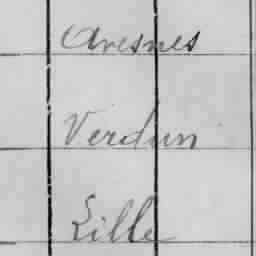 Avesnes
Verdun
Lille